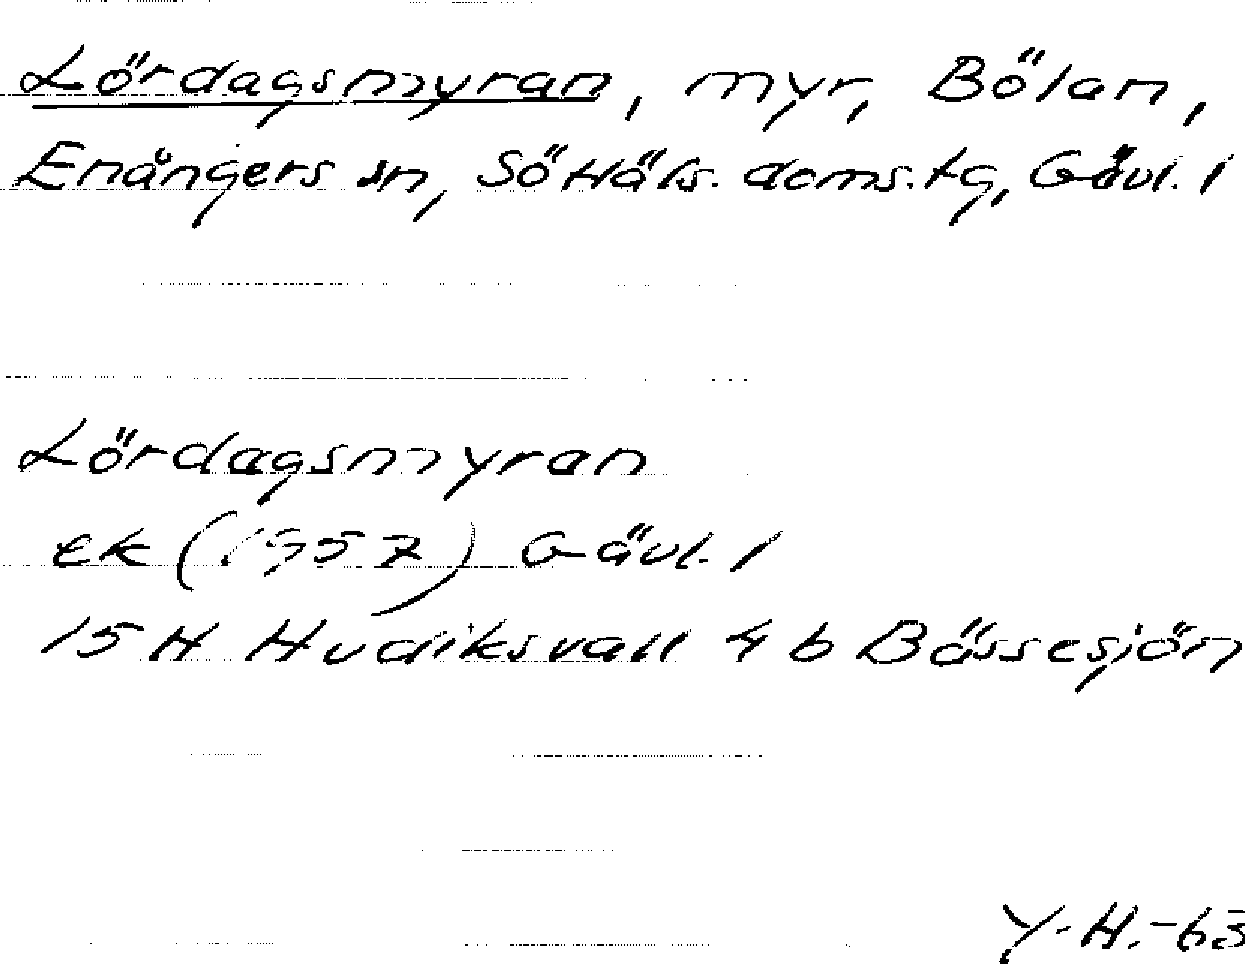 Lördagsmyran, myr, Bölan,
Enångers sn, SöHäls. doms.tg, Gävl. l
Lördagsmyran
ek (1957) Gävl. l
15 H Hudiksvall 4 b Bössesjön
Y.H.-63